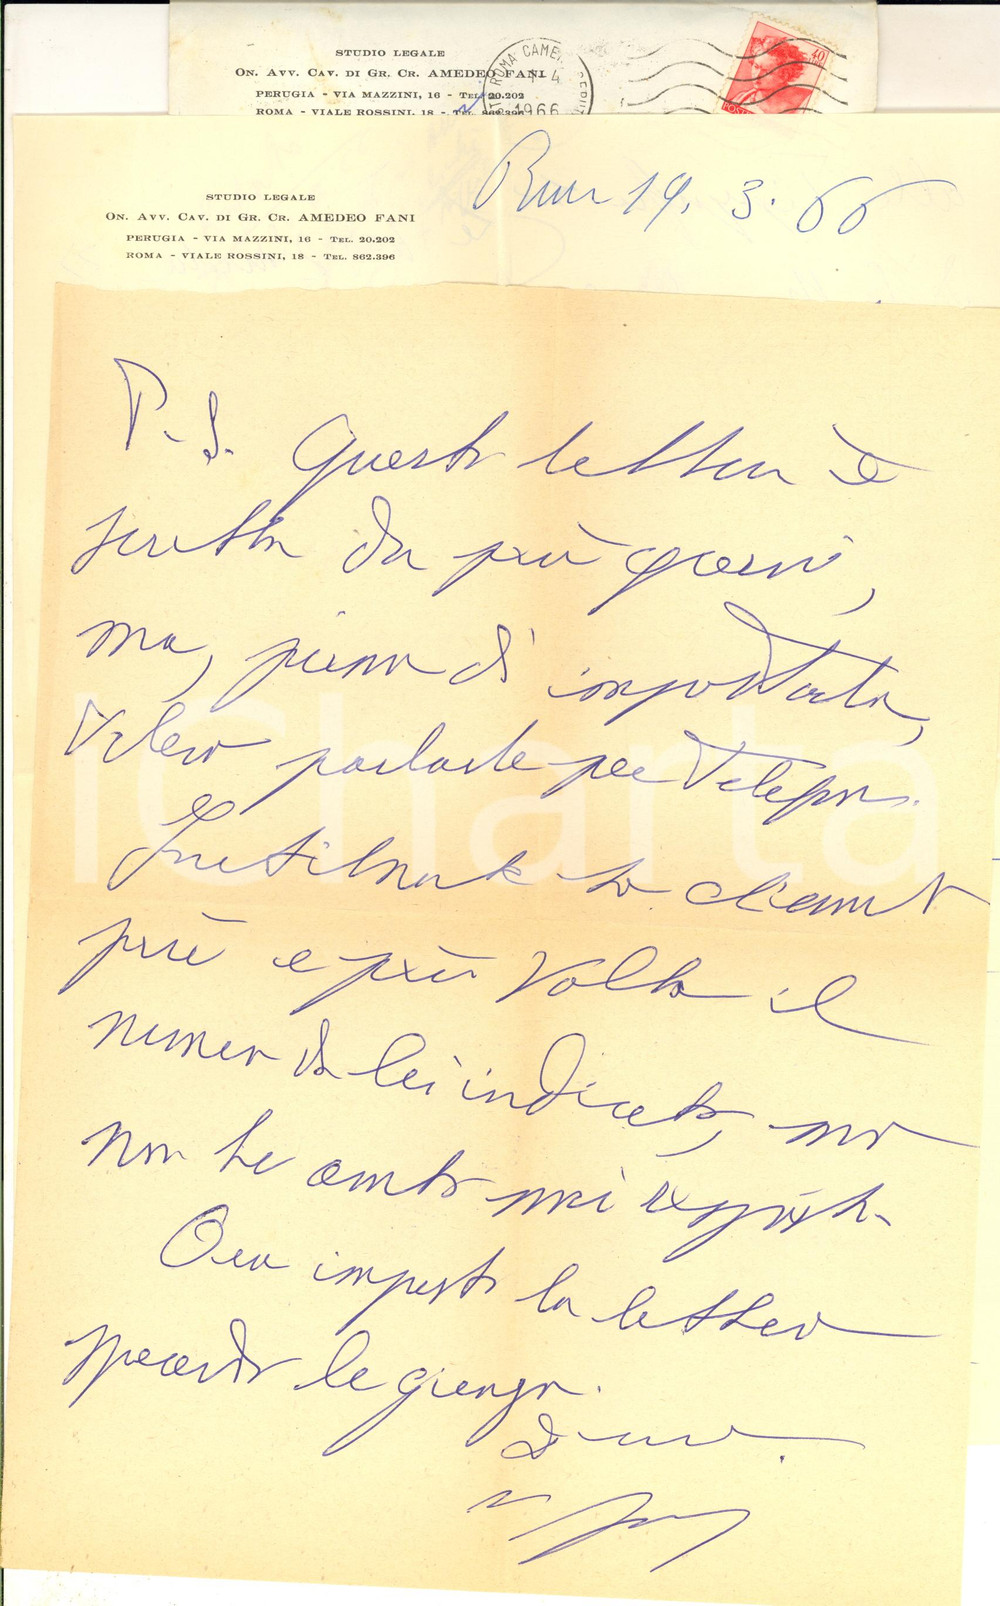 STUDIO LEGALE
ON. AVV. CAV. DI GR. CR. AMEDEO FANI
PERUGIA - VIA MAZZINI, 16 - TEL. 20.202
ROMA - VIALE ROSSINI, 18 - TEL. 862.396
ROMA
1966
40
STUDIO LEGALE
ON. AVV. CAV. DI GR. CR. AMEDEO FANI
PERUGIA - VIA MAZZINI, 16 - TEL. 20.202
ROMA - VIALE ROSSINI, 18 - TEL. 862.396
Roma 19. 3. 66
P.S. Questa lettera è
scritta da più giorni,
ma, prima di impostarla,
volevo parlarle per telefono.
Inutilmente ho chiamato
più e più volte il
numero da lei indicato, ma
non ho avuto mai risposta.
Ora imposto la lettera
sperando le giunga.
iCharta